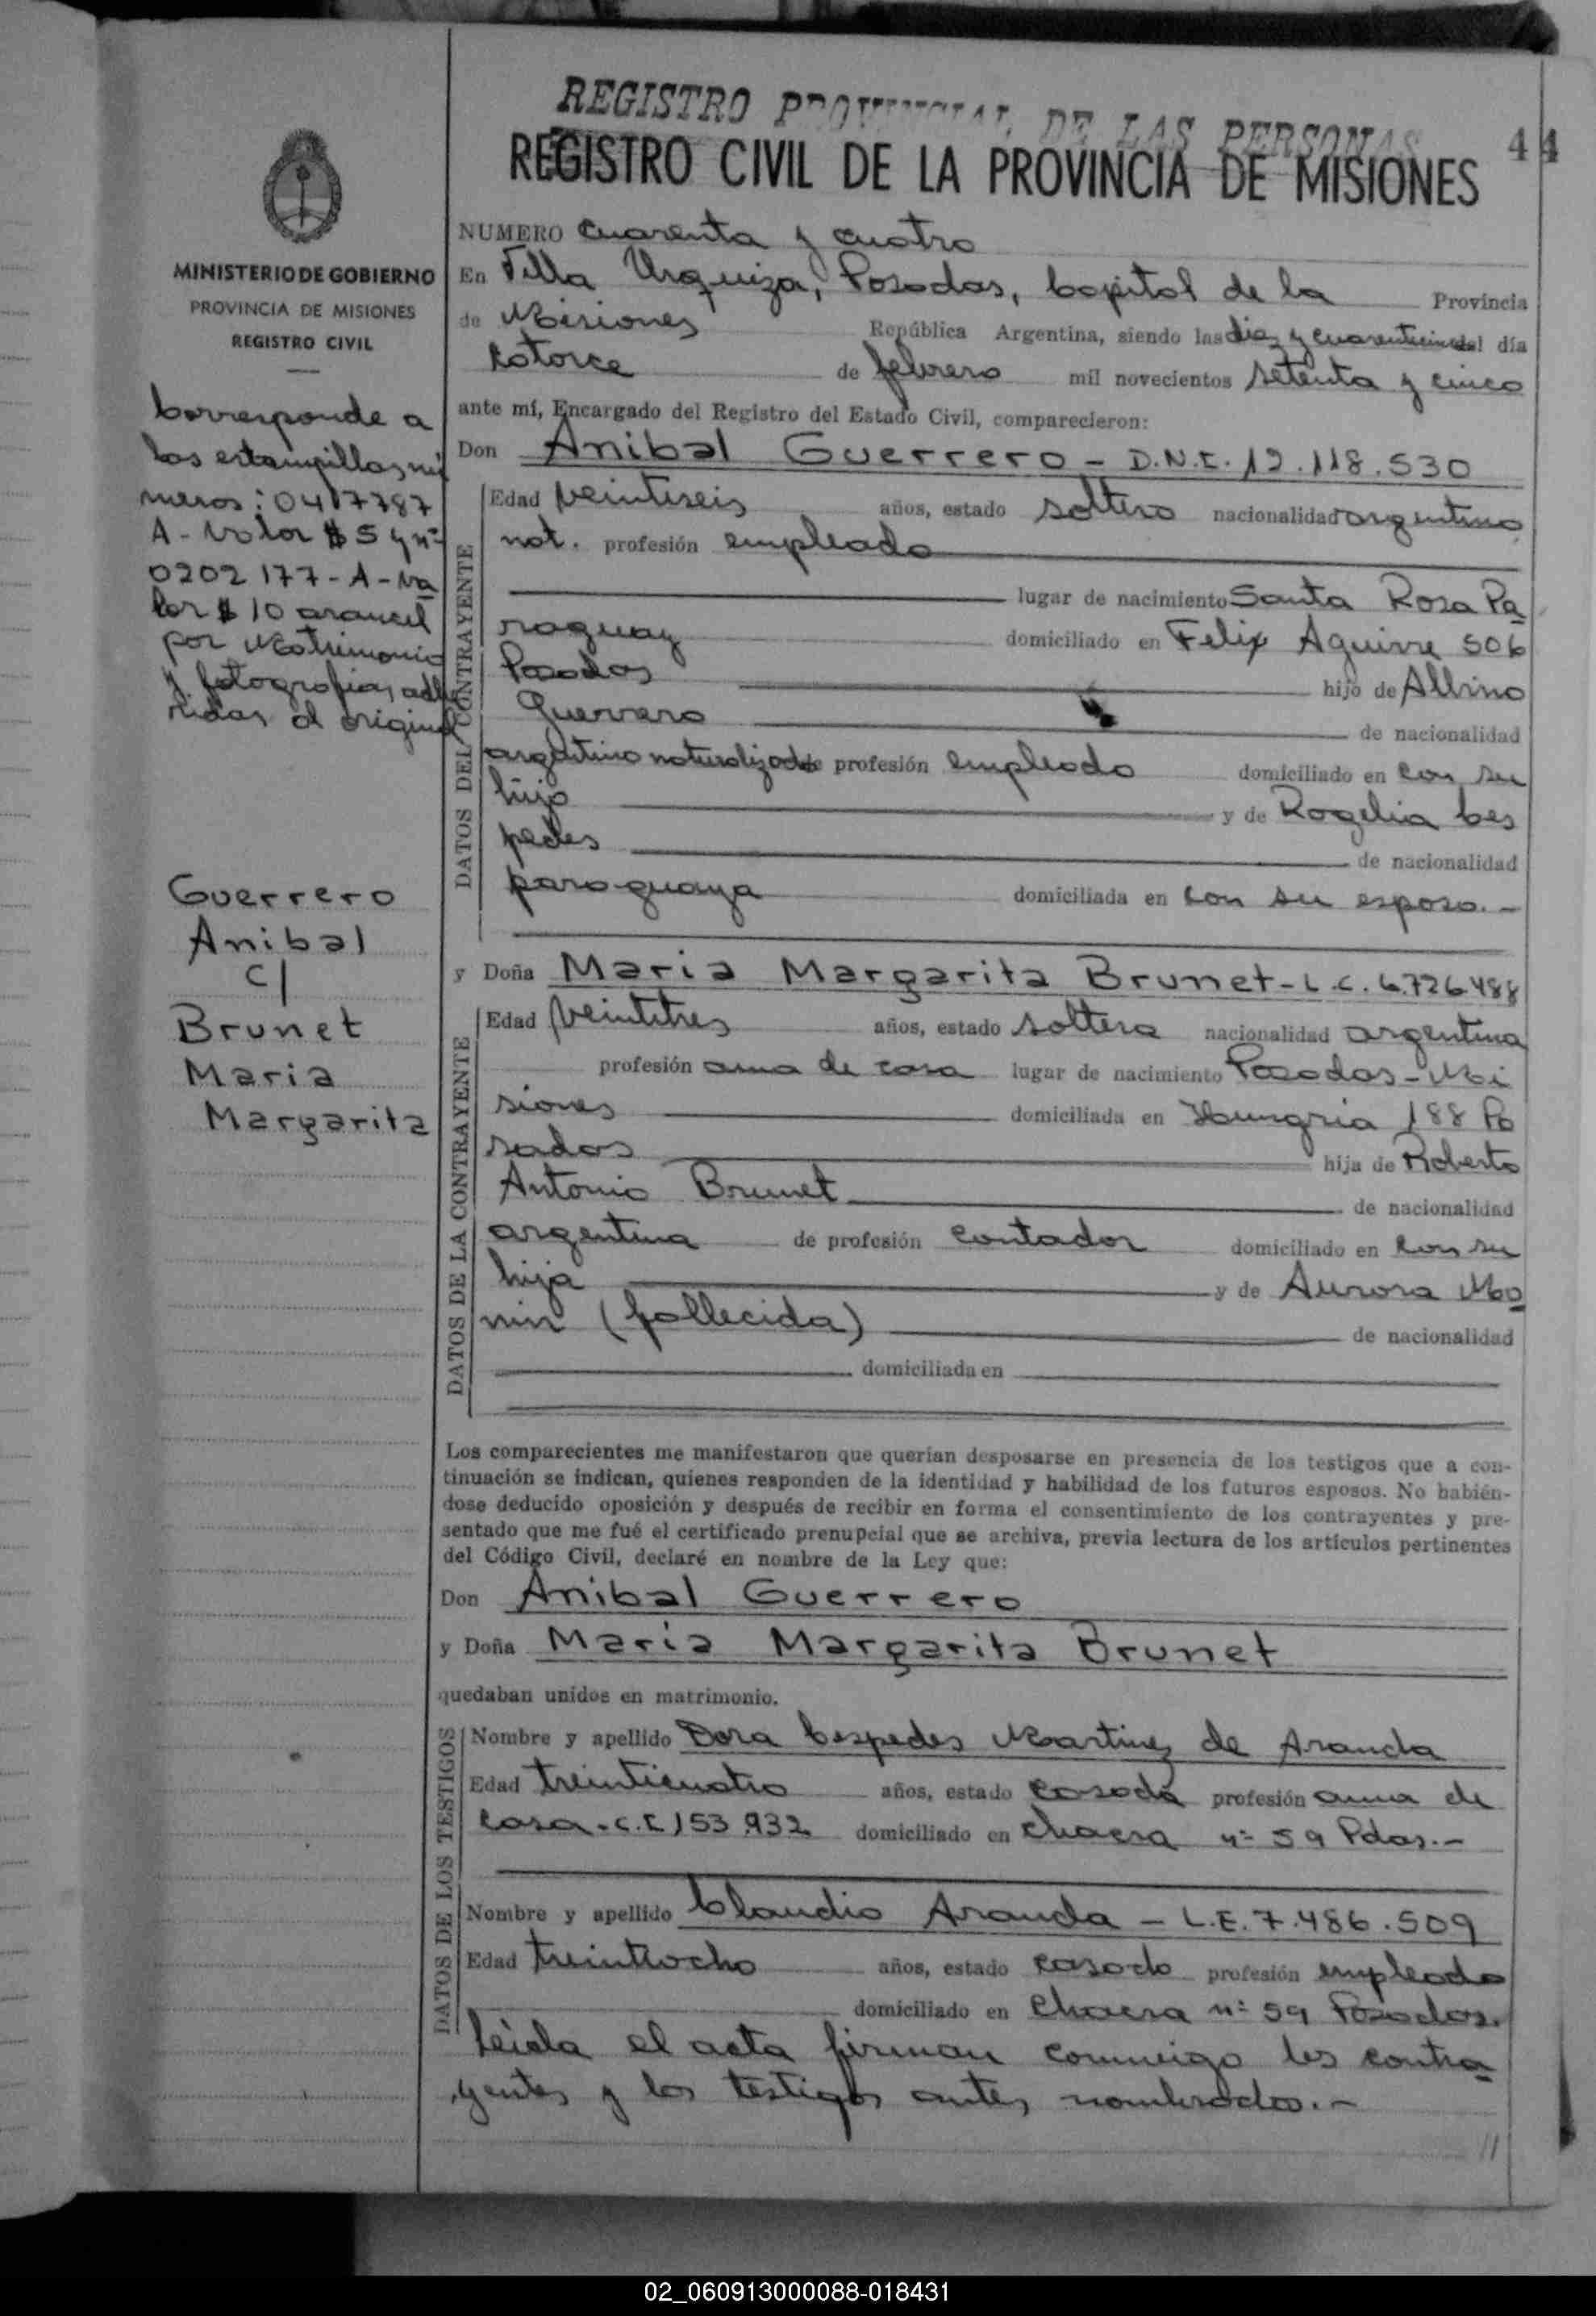 REGISTRO PROVINCIAL DE LAS PERSONAS
44
REGISTRO CIVIL DE LA PROVINCIA DE MISIONES
MINISTERIO DE GOBIERNO
PROVINCIA DE MISIONES
REGISTRO CIVIL
Corresponde a
las estampillas nú
meros: 0417787
A - Valor $ 5 y nº
0202177 - A - Va
lor $ 10 arancel
por Matrimonio
y fotografias, adhe
ridas al original
Guerrero
Anibal
c/
Brunet
Maria
Margarita
NUMERO Cuarenta y cuatro
En Villa Urquiza, Posadas, Capital de la Provincia
de Misiones República Argentina, siendo las diez y cuarenticinco del día
catorce de febrero mil novecientos setenta y cinco
ante mí, Encargado del Registro del Estado Civil, comparecieron:
Don Anibal Guerrero - D.N.I. 12.118.530
DATOS DEL CONTRAYENTE
Edad veintiseis años, estado soltero nacionalidad argentino
nat. profesión empleado
lugar de nacimiento Santa Rosa Pa
raguay domiciliado en Felix Aguirre 506
Posadas hijo de Albino
Guerrero de nacionalidad
argentino naturalizado de profesión empleado domiciliado en con su
hijo y de Rogelia Ces
pedes de nacionalidad
paraguaya domiciliada en con su esposo.-
y Doña Maria Margarita Brunet - L.C. 6.726.488
DATOS DE LA CONTRAYENTE
Edad veintitres años, estado soltera nacionalidad argentina
profesión ama de casa lugar de nacimiento Posadas - Mi
siones domiciliada en Hungria 188 Po
sadas hija de Roberto
Antonio Brunet de nacionalidad
argentina de profesión contador domiciliado en con su
hija y de Aurora Mo
nin (fallecida) de nacionalidad
domiciliada en
Los comparecientes me manifestaron que querían desposarse en presencia de los testigos que a con-
tinuación se indican, quienes responden de la identidad y habilidad de los futuros esposos. No habién-
dose deducido oposición y después de recibir en forma el consentimiento de los contrayentes y pre-
sentado que me fué el certificado prenupcial que se archiva, previa lectura de los artículos pertinentes
del Código Civil, declaré en nombre de la Ley que:
Don Anibal Guerrero
y Doña Maria Margarita Brunet
quedaban unidos en matrimonio.
DATOS DE LOS TESTIGOS
Nombre y apellido Dora Cespedes Martinez de Aranda
Edad treinticuatro años, estado casada profesión ama de
casa - C.I 153.932 domiciliado en Chacra nº 59 Pdas.-
Nombre y apellido Claudio Aranda - L.E. 7.486.509
Edad treintiocho años, estado casado profesión empleado
domiciliado en Chacra nº 59 Posadas.
Leida el acta firman conmigo los contra
yentes y los testigos antes nombrados.-
//
02_060913000088-018431